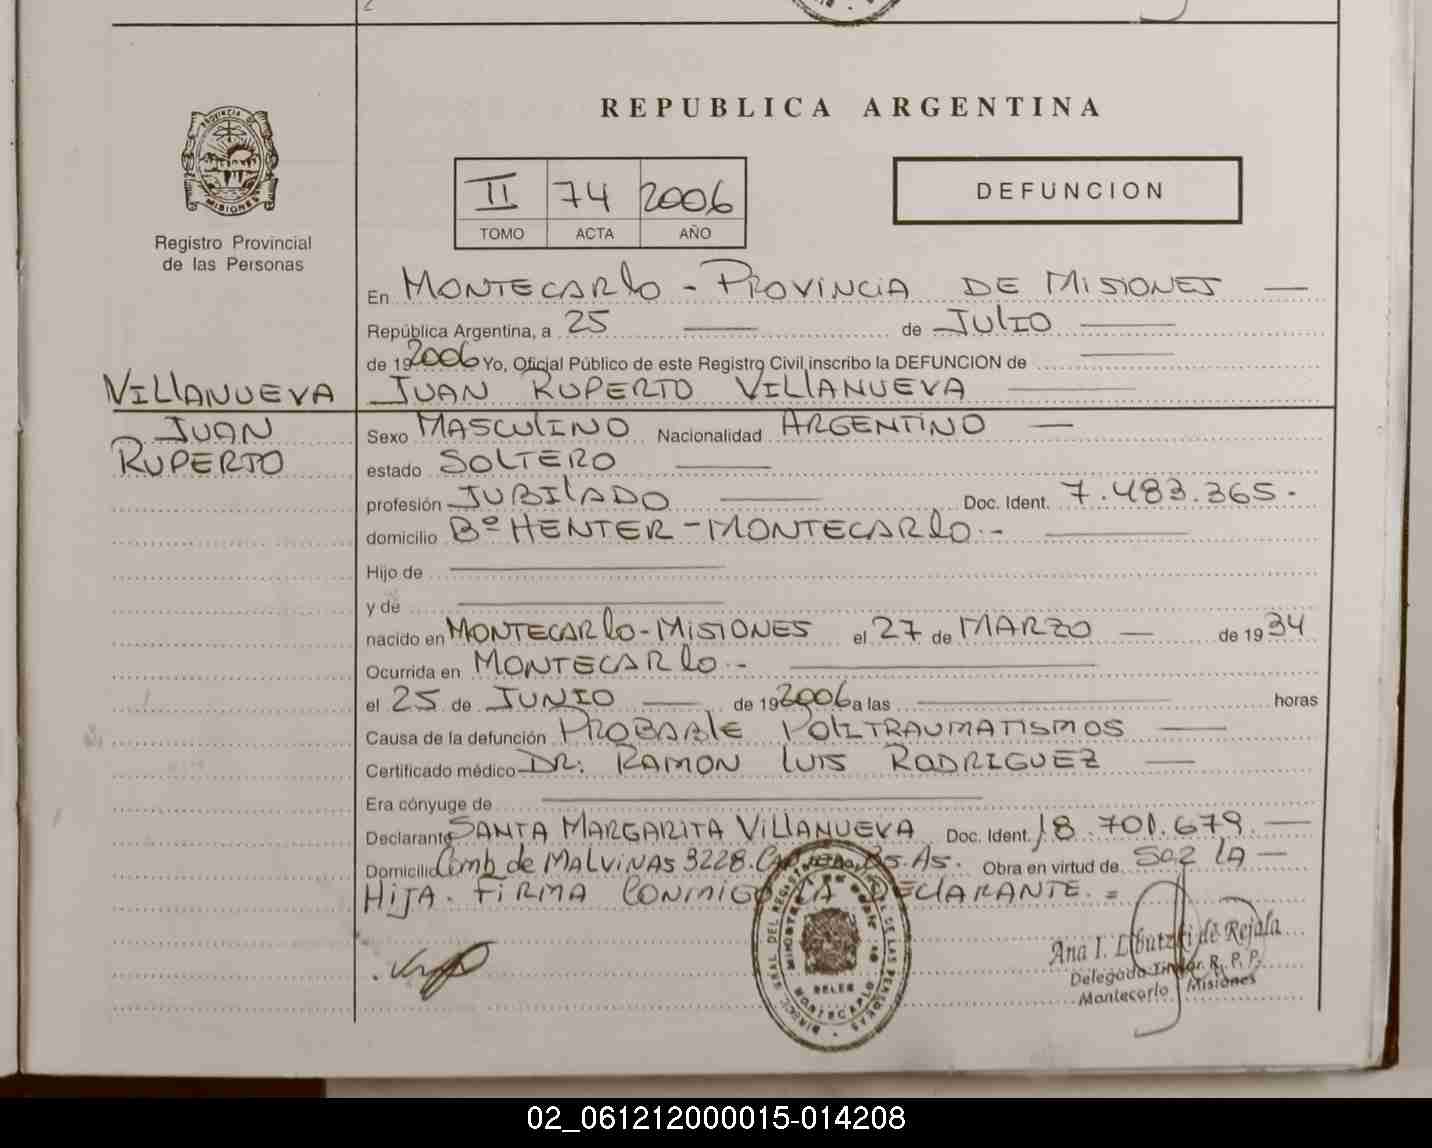 REPUBLICA ARGENTINA
PROVINCIA DE
MISIONES
Registro Provincial
de las Personas
II 74 2006
TOMO ACTA AÑO
DEFUNCION
En MONTECARLO - PROVINCIA DE MISIONES
República Argentina, a 25 de JULIO
de 192006 Yo, Oficial Público de este Registro Civil inscribo la DEFUNCION de
JUAN RUPERTO VILLANUEVA
VILLANUEVA
JUAN
RUPERTO
Sexo MASCULINO Nacionalidad ARGENTINO
estado SOLTERO
profesión JUBILADO Doc. Ident. 7.483.365.
domicilio Bº HENTER - MONTECARLO.-
Hijo de
y de
nacido en MONTECARLO - MISIONES el 27 de MARZO de 1934
Ocurrida en MONTECARLO.-
el 25 de JUNIO de 192006 a las horas
Causa de la defunción PROBABLE POLITRAUMATISMOS
Certificado médico DR. RAMON LUIS RODRIGUEZ
Era cónyuge de
Declarante SANTA MARGARITA VILLANUEVA Doc. Ident. 18.701.679.
Domicilio Comb. de MALVINAS 3228. Bs. As. Obra en virtud de SER LA
HIJA. FIRMA CONMIGO LA DECLARANTE. =
Ana I. de Rejala
Delegada Titular R. P. P.
Montecarlo Misiones
02_061212000015-014208